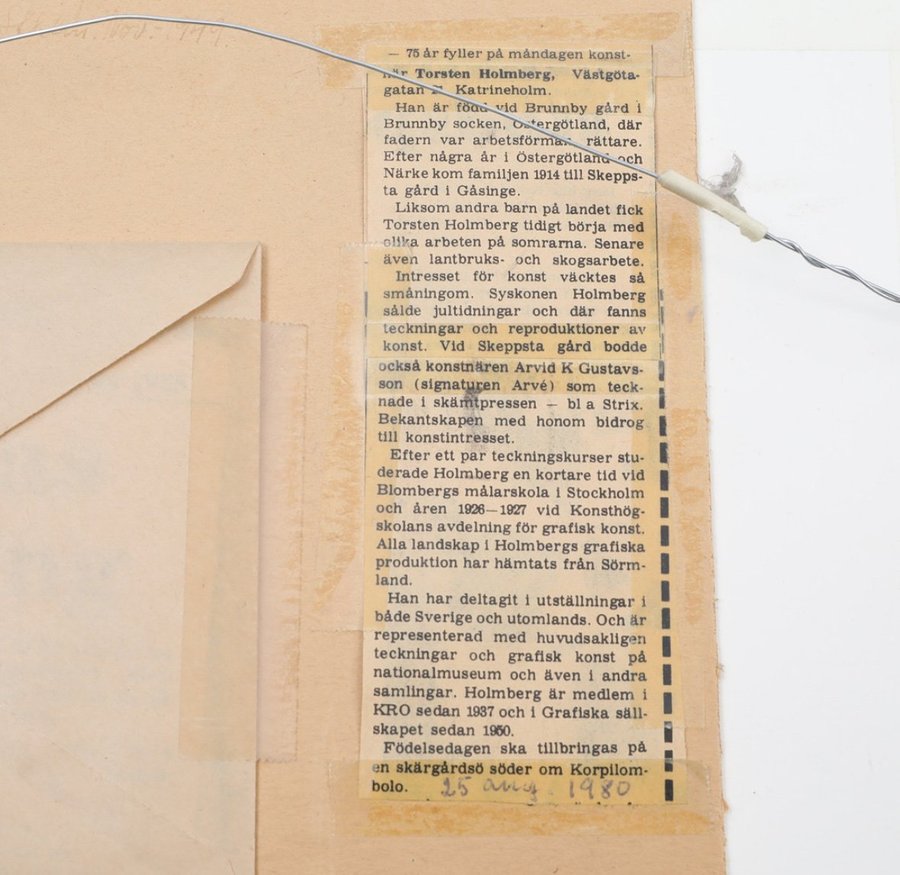 — 75 år fyller på måndagen konst-
när Torsten Holmberg, Västgöta-
gatan Katrineholm.
Han är född vid Brunnby gård i
Brunnby socken, Östergötland, där
fadern var arbetsförman, rättare.
Efter några år i Östergötland och
Närke kom familjen 1914 till Skepps-
ta gård i Gåsinge.
Liksom andra barn på landet fick
Torsten Holmberg tidigt börja med
olika arbeten på somrarna. Senare
även lantbruks- och skogsarbete.
Intresset för konst väcktes så
småningom. Syskonen Holmberg
sålde jultidningar och där fanns
teckningar och reproduktioner av
konst. Vid Skeppsta gård bodde
också konstnären Arvid K Gustavs-
son (signaturen Arvé) som teck-
nade i skämtpressen — bl a Strix.
Bekantskapen med honom bidrog
till konstintresset.
Efter ett par teckningskurser stu-
derade Holmberg en kortare tid vid
Blombergs målarskola i Stockholm
och åren 1926—1927 vid Konsthög-
skolans avdelning för grafisk konst.
Alla landskap i Holmbergs grafiska
produktion har hämtats från Sörm-
land.
Han har deltagit i utställningar i
både Sverige och utomlands. Och är
representerad med huvudsakligen
teckningar och grafisk konst på
nationalmuseum och även i andra
samlingar. Holmberg är medlem i
KRO sedan 1937 och i Grafiska säll-
skapet sedan 1950.
Födelsedagen ska tillbringas på
en skärgårdsö söder om Korpilom-
bolo. 25 aug. 1980